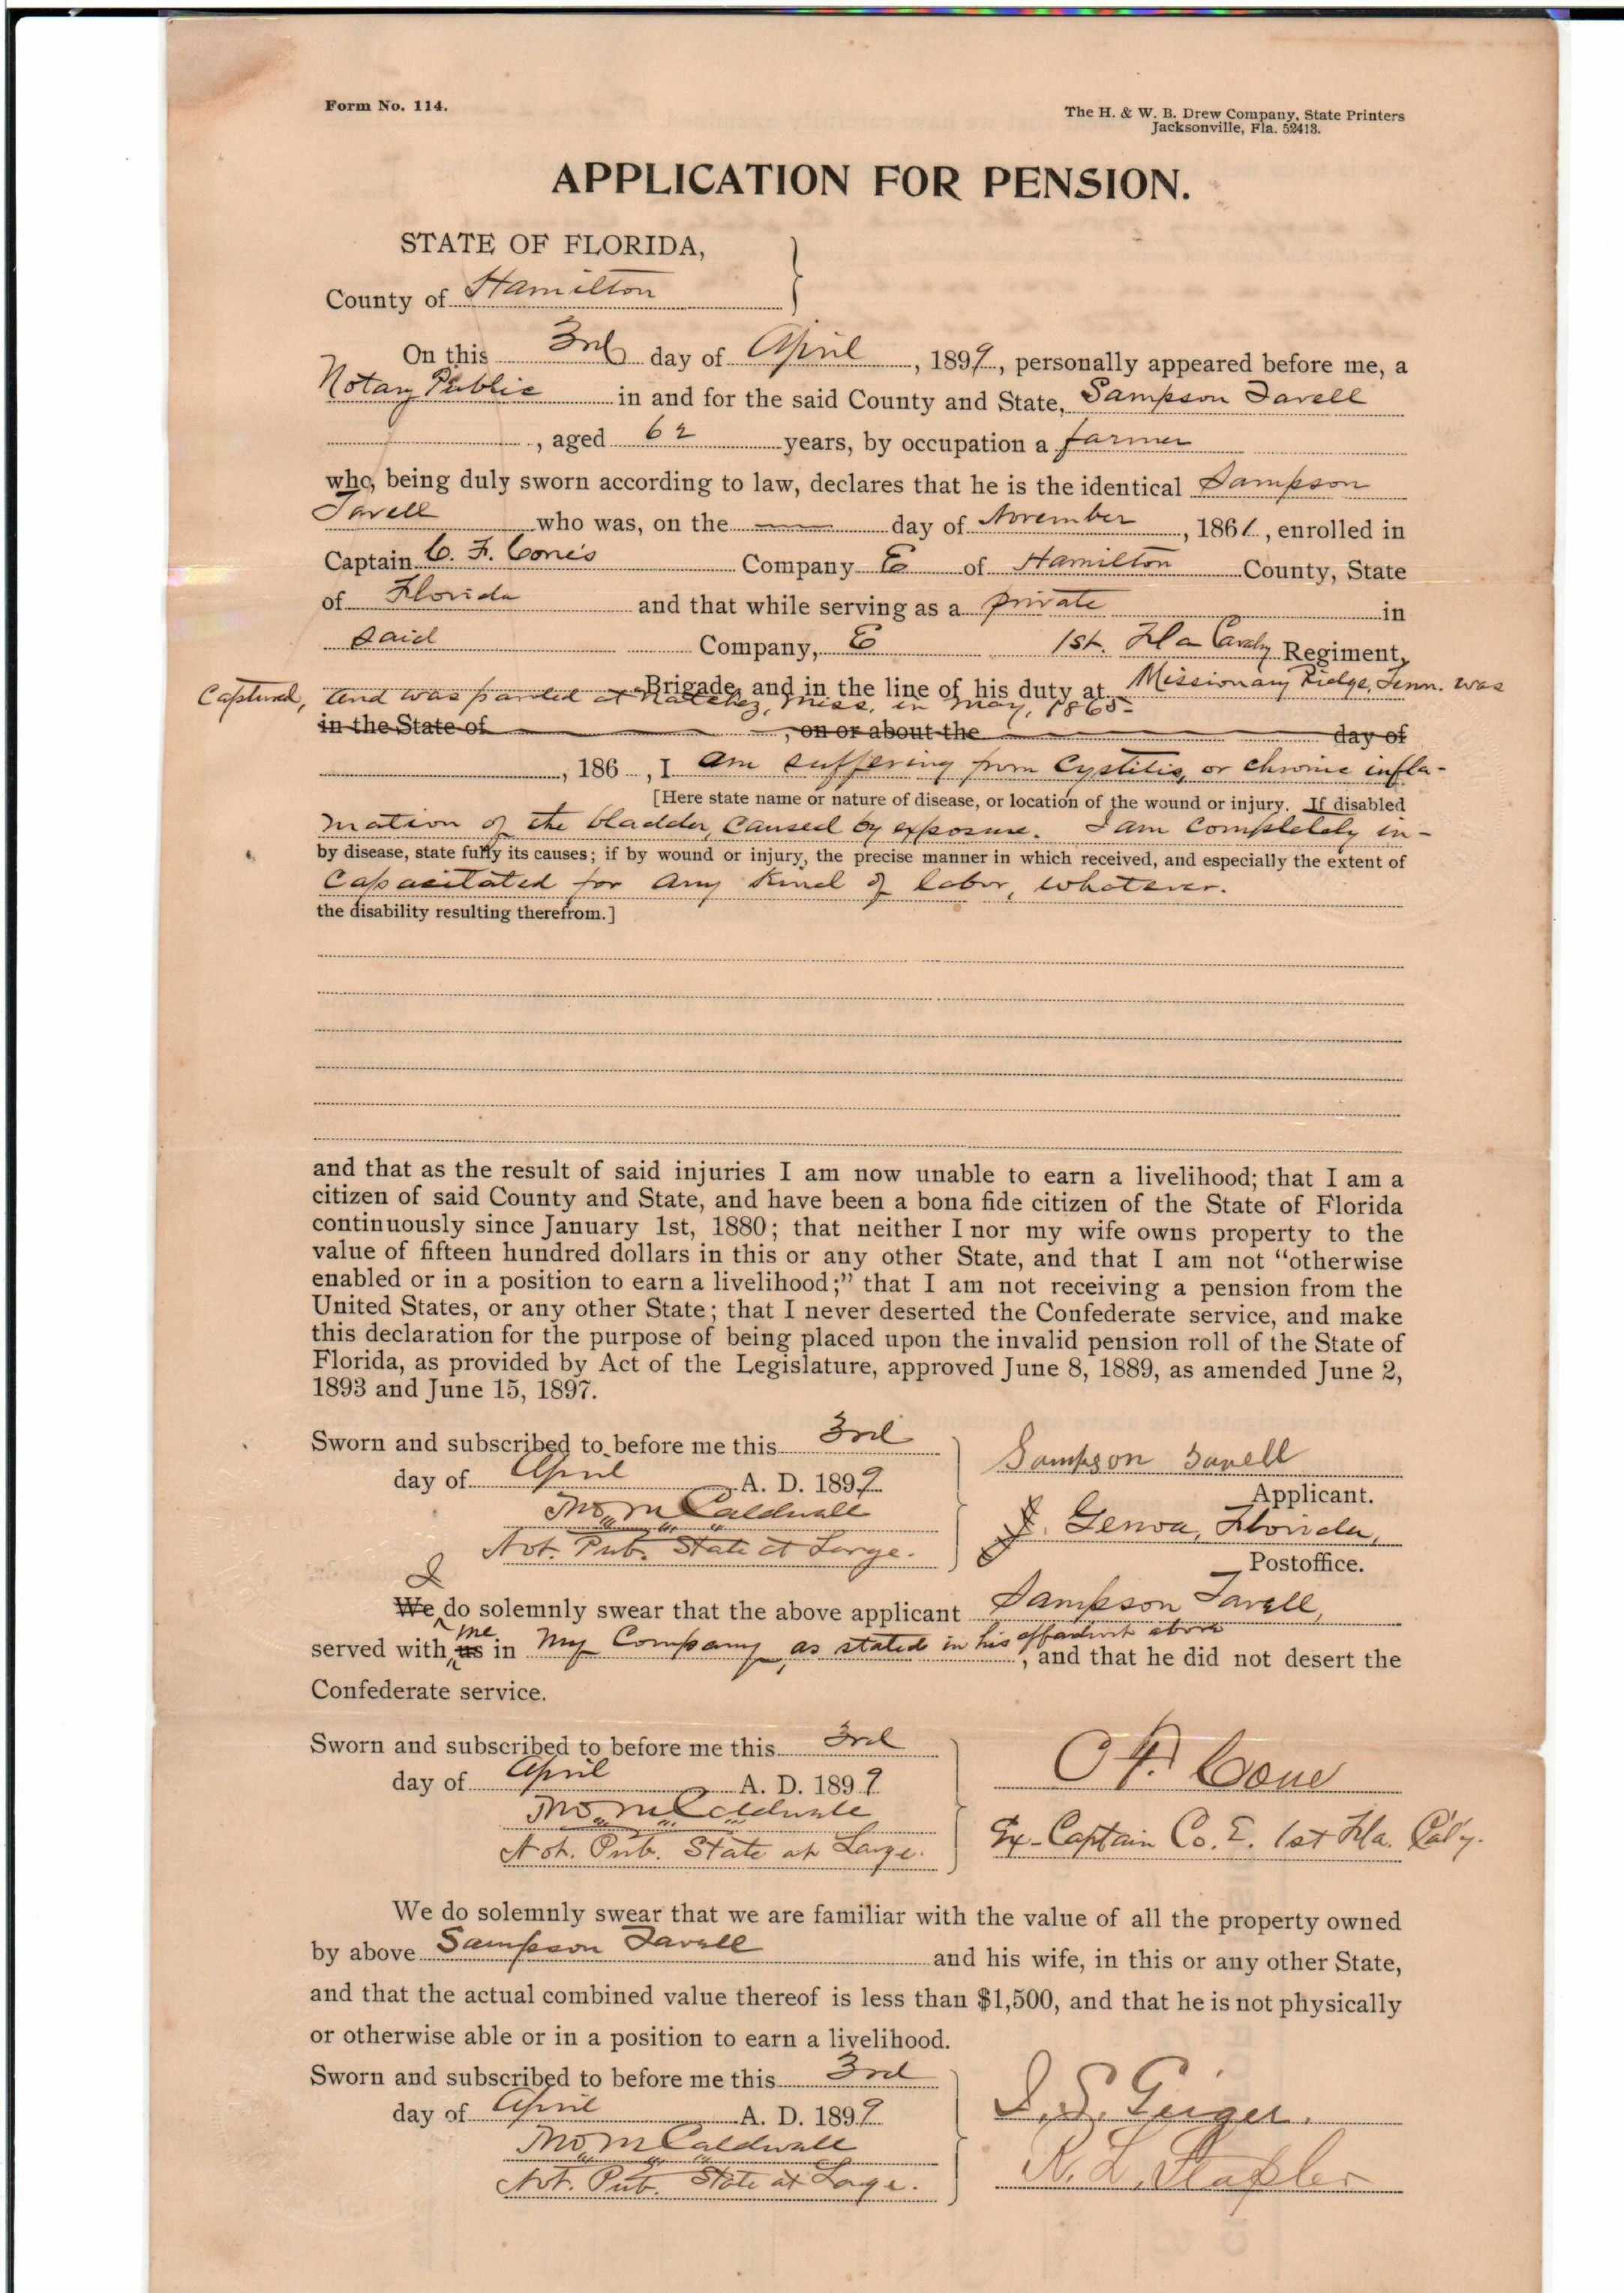 Form No. 114.
The H. & W. B. Drew Company, State Printers
Jacksonville, Fla. 52413.
APPLICATION FOR PENSION.
STATE OF FLORIDA,
County of Hamilton
On this 3rd day of April, 1899, personally appeared before me, a
Notary Public in and for the said County and State, Sampson
, aged 62 years, by occupation a farmer
who, being duly sworn according to law, declares that he is the identical Sampson
who was, on the — day of November, 1861, enrolled in
Captain C. F. Cone's Company E of Hamilton County, State
of Florida and that while serving as a private in
said Company, E 1st. Fla Cavalry Regiment,
Brigade, and in the line of his duty at Missionary Ridge, Tenn. was
Captured, and was paroled at Natchez, Miss. in May, 1865-
in the State of , on or about the day of
, 186 , I am suffering from Cystitis, or chronic infla-
[Here state name or nature of disease, or location of the wound or injury. If disabled
mation of the bladder, caused by exposure. I am completely in-
by disease, state fully its causes; if by wound or injury, the precise manner in which received, and especially the extent of
capacitated for any kind of labor, whatever.
the disability resulting therefrom.]
and that as the result of said injuries I am now unable to earn a livelihood; that I am a
citizen of said County and State, and have been a bona fide citizen of the State of Florida
continuously since January 1st, 1880; that neither I nor my wife owns property to the
value of fifteen hundred dollars in this or any other State, and that I am not "otherwise
enabled or in a position to earn a livelihood;" that I am not receiving a pension from the
United States, or any other State; that I never deserted the Confederate service, and make
this declaration for the purpose of being placed upon the invalid pension roll of the State of
Florida, as provided by Act of the Legislature, approved June 8, 1889, as amended June 2,
1893 and June 15, 1897.
Sworn and subscribed to before me this 3rd
day of April A. D. 1899
Caldwell
Not. Pub. State at Large.
Sampson
Applicant.
Genoa, Florida,
Postoffice.
I
We do solemnly swear that the above applicant Sampson
me
served with us in my Company, as stated in his affadavit above, and that he did not desert the
Confederate service.
Sworn and subscribed to before me this 3rd
day of April A. D. 1899
Caldwell
Not. Pub. State at Large.
C F. Cone
Ex-Captain Co. E. 1st Fla. Cal'y.
We do solemnly swear that we are familiar with the value of all the property owned
by above Sampson and his wife, in this or any other State,
and that the actual combined value thereof is less than $1,500, and that he is not physically
or otherwise able or in a position to earn a livelihood.
Sworn and subscribed to before me this 3rd
day of April A. D. 1899
Caldwell
Not. Pub. State at Large.
Geiger.
R. L. Stapler